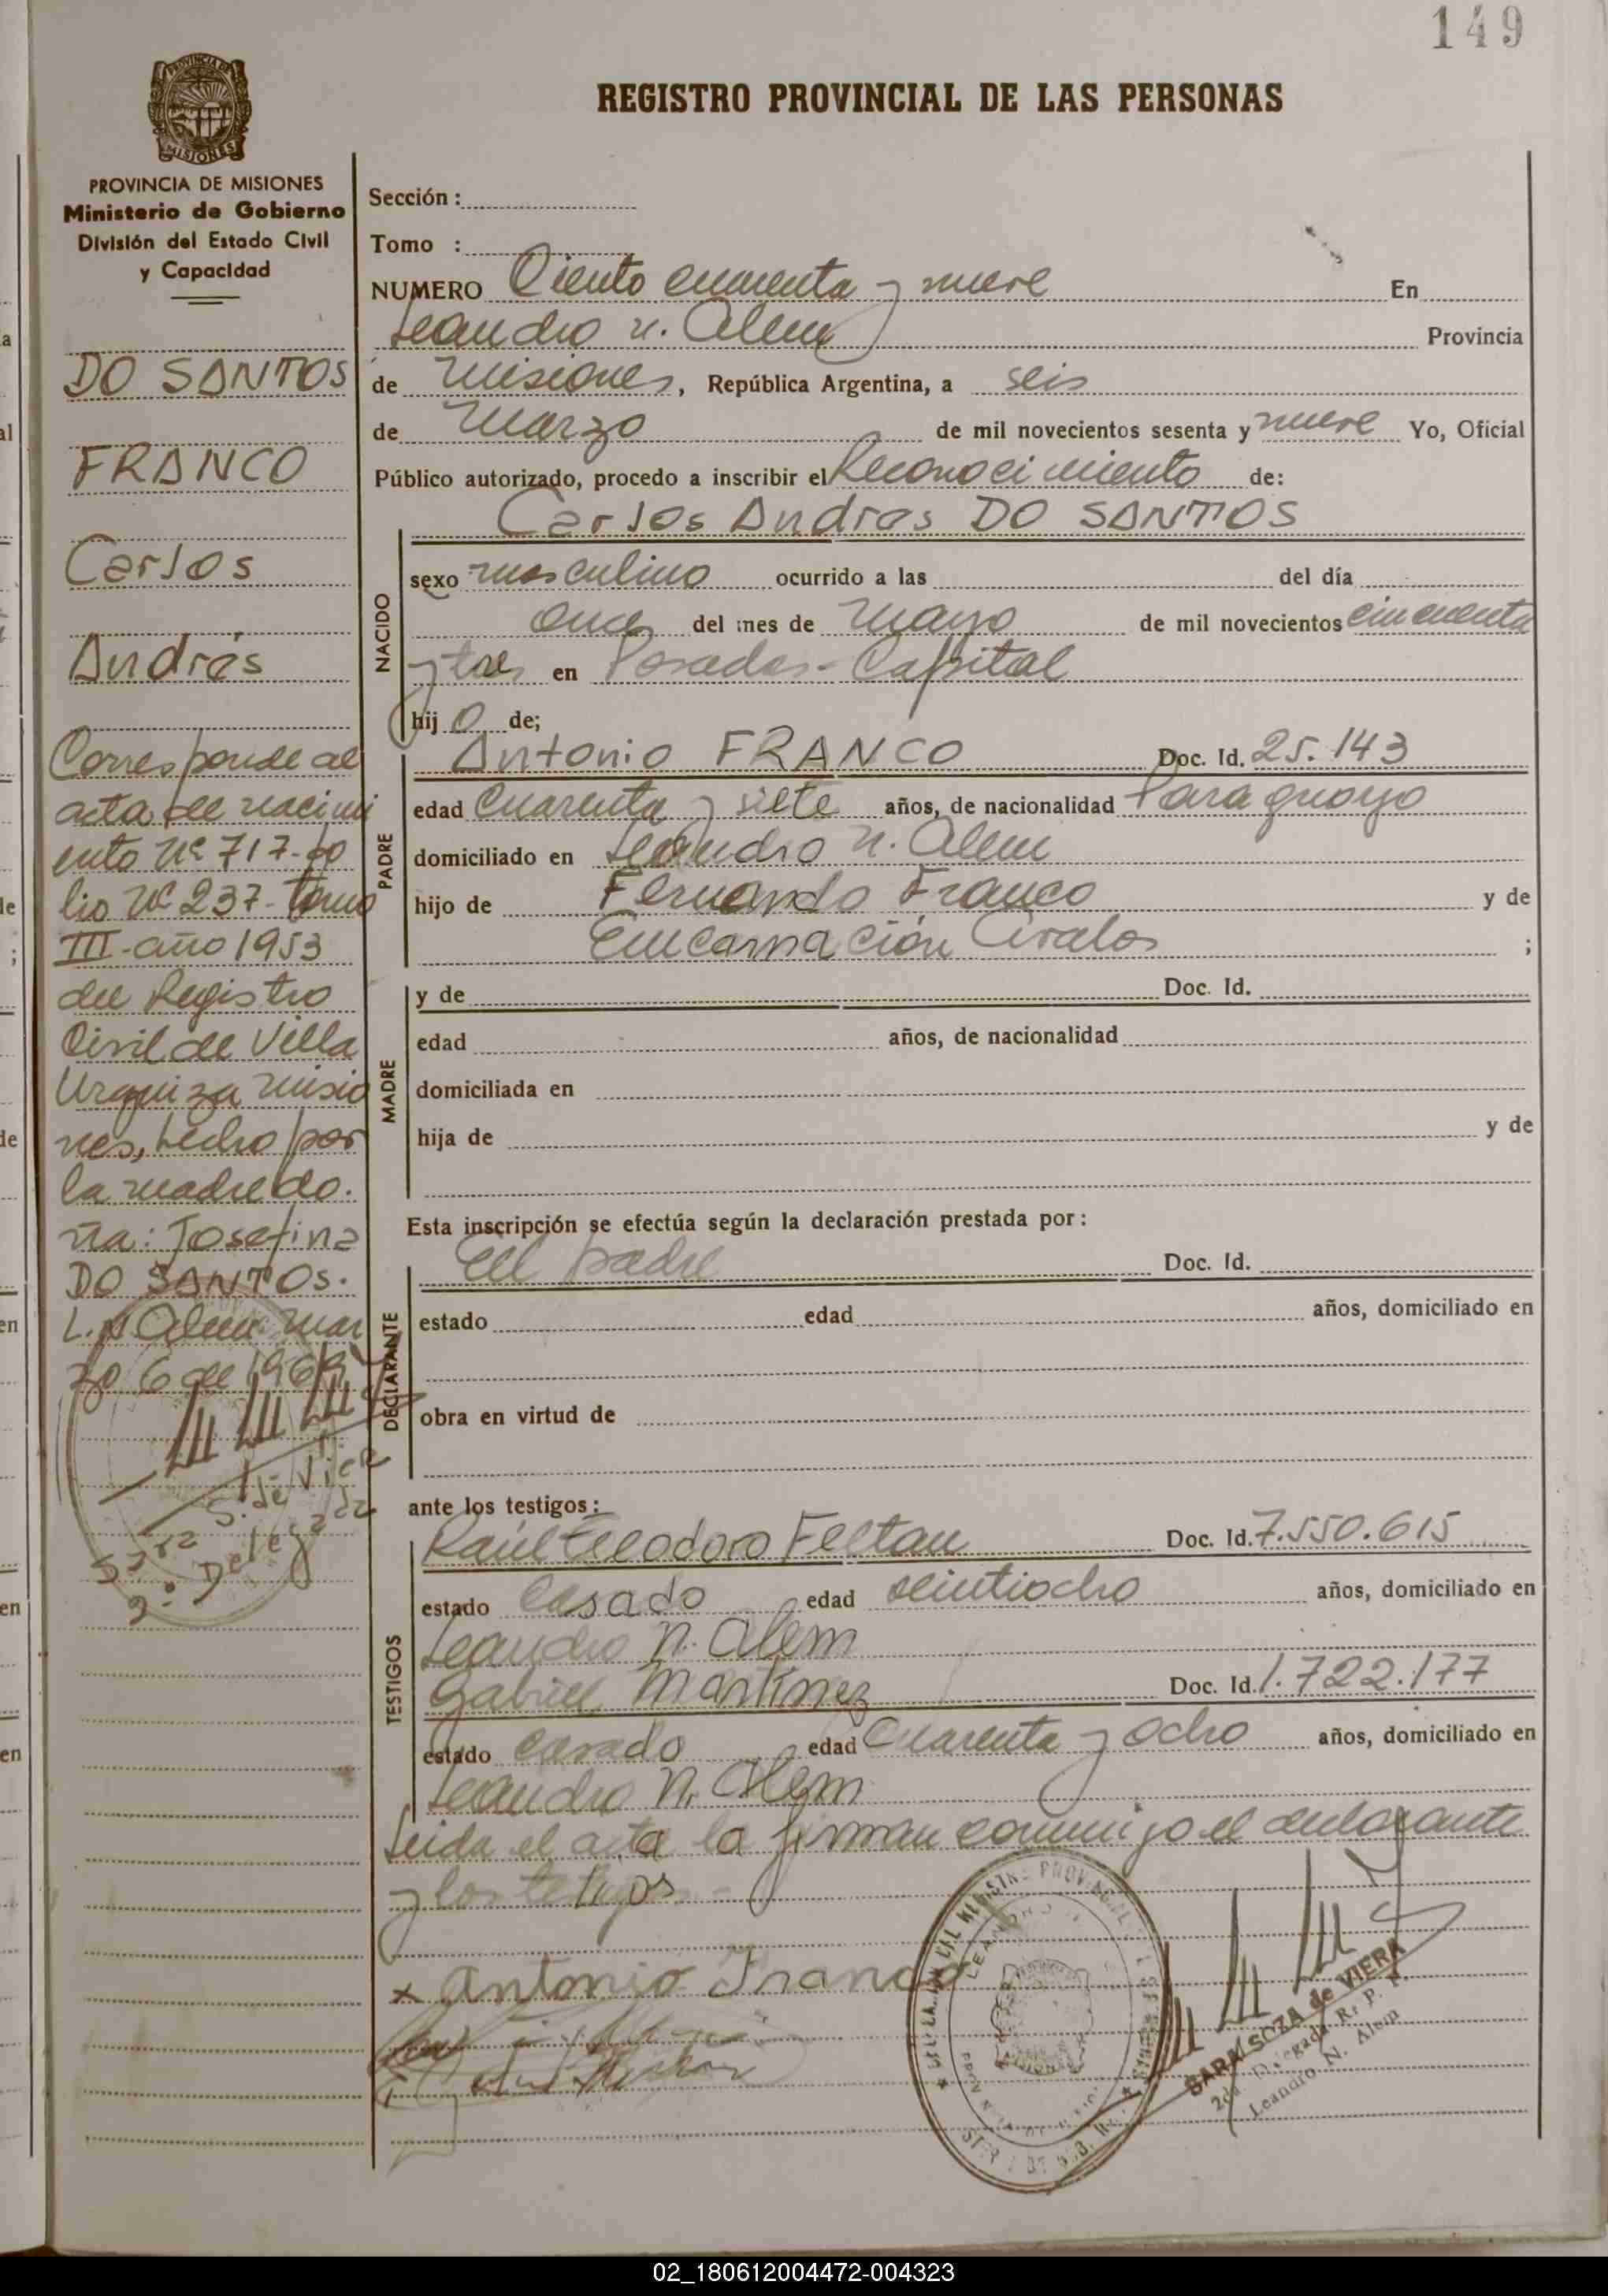 149
REGISTRO PROVINCIAL DE LAS PERSONAS
PROVINCIA DE MISIONES
Ministerio de Gobierno
División del Estado Civil
y Capacidad
DO SANTOS
FRANCO
Carlos
Andrés
Corresponde al
acta de nacimi
ento Nº 717-fo
lio Nº 237-tomo
III-año 1953
del Registro
Civil de Villa
Urquiza Misio
nes, hecho por
la madre do.
ña: Josefina
DO SANTOS.
L.N. Alem Mar
zo 6 de 1969
S. de Viera
2º Delegada
Sección :
Tomo :
NUMERO Ciento cuarenta y nueve En
Leandro N. Alem Provincia
de Misiones, República Argentina, a seis
de Marzo de mil novecientos sesenta y nueve Yo, Oficial
Público autorizado, procedo a inscribir el Reconocimiento de:
Carlos Andres DO SANTOS
NACIDO
sexo masculino ocurrido a las del día
once del mes de Mayo de mil novecientos cincuenta
y tres en Posadas-Capital
hij o de;
PADRE
Antonio FRANCO Doc. Id. 25.143
edad cuarenta y siete años, de nacionalidad Paraguayo
domiciliado en Leandro N. Alem
hijo de Fernando Franco y de
Encarnación ;
MADRE
y de Doc. Id.
edad años, de nacionalidad
domiciliada en
hija de y de
Esta inscripción se efectúa según la declaración prestada por:
DECLARANTE
El padre Doc. Id.
estado edad años, domiciliado en
obra en virtud de
ante los testigos:
TESTIGOS
Raúl Feltan Doc. Id. 7.550.615
estado Casado edad veintiocho años, domiciliado en
Leandro N. Alem
Gabriel Martínez Doc. Id. 1.722.177
estado casado edad Cuarenta y ocho años, domiciliado en
Leandro N. Alem
Leida el acta la firman conmigo el declarante
y los testigos
x Antonio Franco
SARA SOZA de VIERA
2da. Delegada R. P. P.
Leandro N. Alem
02_180612004472-004323